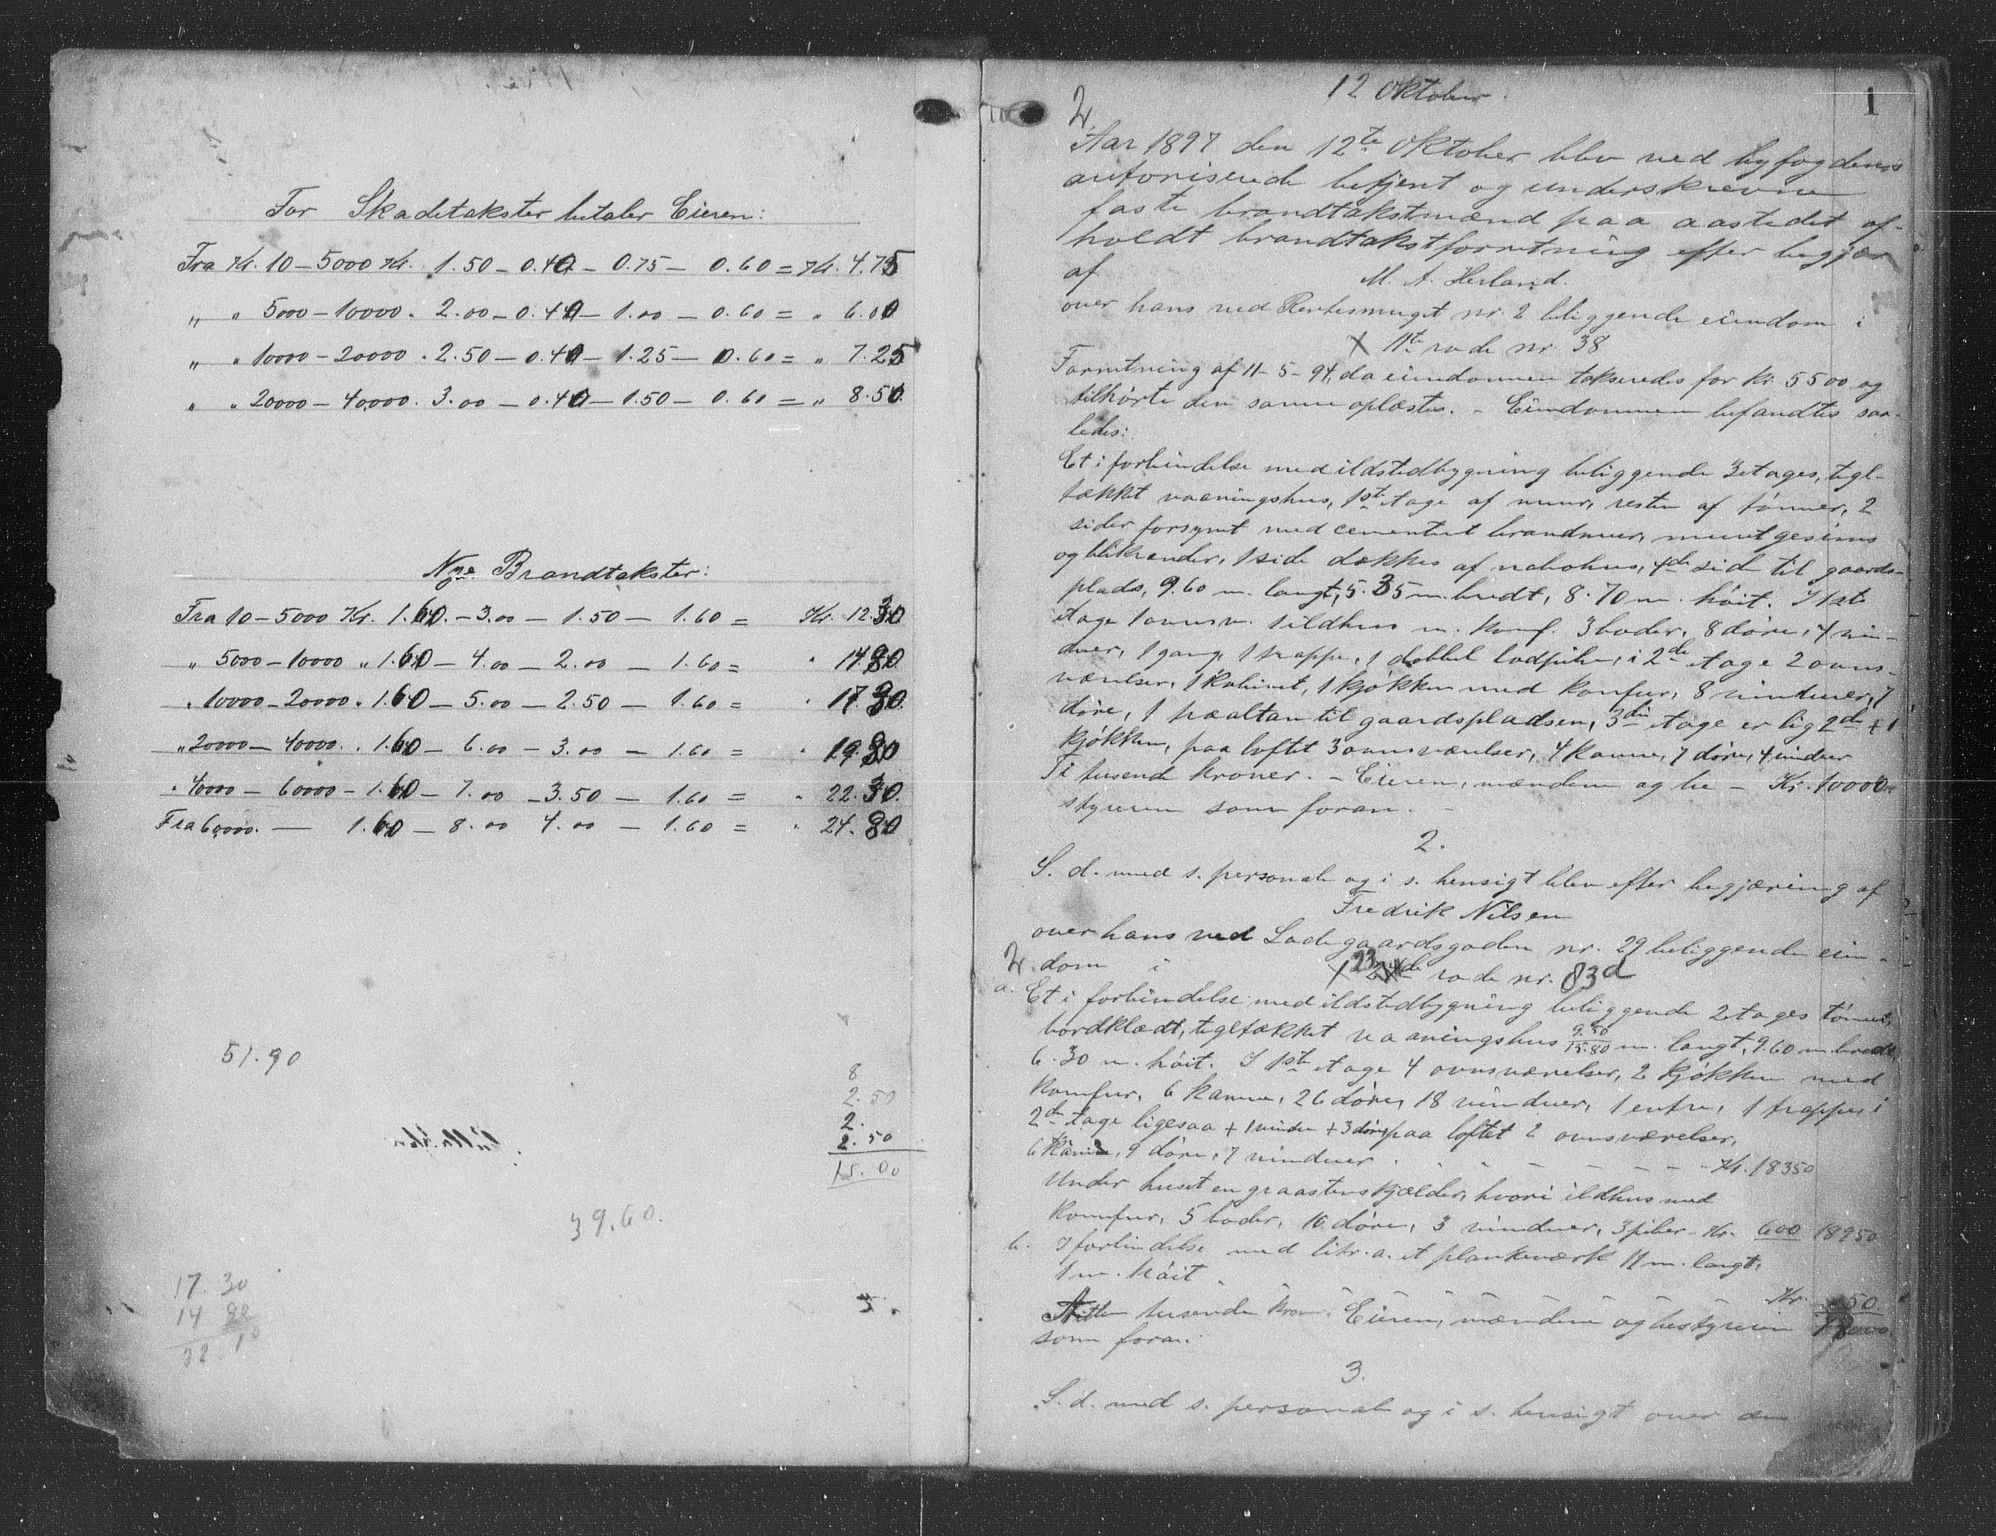 For Skadetakster betaler Eieren:
Fra Kr. 10 – 5000 Kr. 1.50 – 0.40 – 0.75 – 0.60 = Kr. 4.75
„ „ 5000 – 10000 . 2.00 – 0.40 – 1.00 – 0.60 = „ 6.00
„ „ 10000 – 20000 . 2.50 – 0.40 – 1.25 – 0.60 = „ 7.25
„ „ 20000 – 40000. 3.00 – 0.40 – 1.50 – 0.60 = „ 8.50.
Nye Brandtakster:
Fra 10 – 5000 Kr. 1.60. – 3.00 – 1.50 – 1.60 = Kr. 12.30
„ 5000 – 10000 „ 1.60 – 4.00 – 2.00 – 1.60 = „ 14.80
„ 10000 – 20000 „ 1.60 – 5.00 – 2.50 – 1.60 = „ 17.30.
„ 20000 – 40000. „ 1.60 – 6.00 – 3.00 – 1.60 = „ 19.80
„ 40000 – 60000 – 1.60 – 7.00 – 3.50 – 1.60 = „ 22.30.
Fra 60000. — 1.60 – 8.00 4.00 – 1.60 = „ 24.80
51.90
8
2.50
2.
2.50
15.00
39.60.
17.30
14
32 10
5.
12 Oktober.
1
Aar 1897 den 12te Oktober blev ved byfogdens
autoriserede betjent og underskrevne
faste brandtakstmænd paa aastedet af-
holdt brandtakstforretning efter begjær
af
M. A. Herland.
over hans ved Reperesmuget nr. 2 beliggende eiendom i
X 11te rode nr. 38
Forretning af 11-5-94, da eiendommen takseredes for kr. 5500 og
tilhørte den samme oplæstes. – Eiendommen befandtes saa-
ledes:
Et i forbindelse med ildstedbygning beliggende 3 etages, tegl-
tækket vaaningshus, 1ste etage af muur, resten af tømmer, 2
sider forsynt med cementeret brandmur, muret gesims
og blikrender, 1 side dækkes af nabohus, 4de side til gaards-
plads, 9.60 m. langt, 5.35 m. bredt, 8.70 m. høit. I 1ste
etage 1 ovnsv. 1 ildhus m. komf. 3 boder, 8 døre, 4 vin-
duer, 1 gang, 1 trappe, 1 dobbel lodpibe, i 2de etage 2 ovns-
værelser, 1 kabinet, 1 kjøkken med komfur, 8 vinduer, 7
døre, 1 træaltan til gaardspladsen, 3die etage er lig 2de + 1
kjøkken, paa loftet 3 ovnsværelser, 4 kamre, 7 døre, 4 vinduer
Ti tusende kroner. – Eieren, mændene og be – Kr. 10000.
styreren som foran. –
2.
S. d. med s. personale og i s. hensigt blev efter begjæring af
Fredrik Nilsen
over hans ved Ladegaardsgaden nr. 29 beliggende eien-
dom i
X 23de rode nr. 83d
a. Et i forbindelse med ildstedbygning beliggende 2 etages tømret,
bordklædt, tegltækket vaaningshus 9.50/15.80 m. langt, 9.60 m. bredt,
6.30 m. høit. I 1ste etage 4 ovnsværelser, 2 kjøkken med
komfur, 6 kamre, 26 døre, 18 vinduer, 1 entre, 1 trappe, i
2de etage ligesaa + 1 vindu + 3 døre, paa loftet 2 ovnsværelser,
6 kamre, 9 døre, 7 vinduer . – – – – – – Kr. 18350
Under huset en graastenskjælder, hvori ildhus med
komfur, 5 boder, 10 døre, 3 vinduer, 3 piber – Kr. 600 18950
b. I forbindelse med litr. a. et plankeværk 11 m. langt,
1 m. høit . – – – – – – – Kr. 50.
Nitten tusende kroner. Eieren, mændene og bestyreren 19000.
som foran.
3.
S. d. med s. personale og i s. hensigt over den